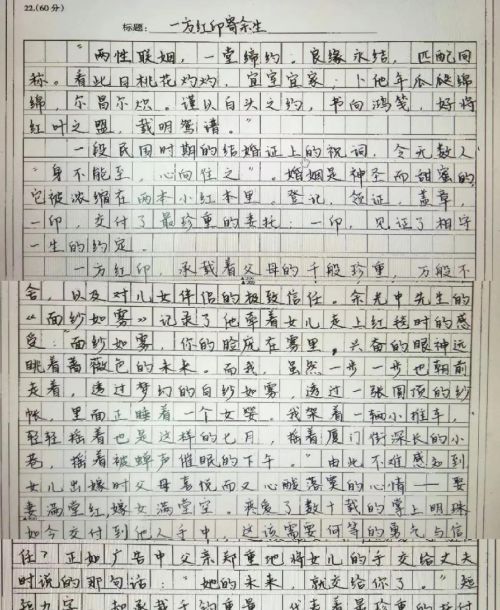 22.(60分)
标题: 一方红印寄余生
"两性联姻,一堂缔约,良缘永结,匹配同
称。看此日桃花灼灼,宜室宜家;卜他年瓜瓞绵
绵,尔昌尔炽。谨以白头之约,书向鸿笺,好将
红叶之盟,载明鸳谱。"
一段民国时期的结婚证上的祝词,令无数人
"身不能至,心向往之"。婚姻是神圣而甜蜜的
它被浓缩在两本小红本里。登记,领证,盖章,
一印,交付了最珍重的委托;一印,见证了相守
一生的约定。
一方红印,承载着父母的千般珍重,万般不
舍,以及对儿女伴侣的极致信任。余光中先生的
《面纱如雾》记录了他牵着女儿走上红毯时的感
受:"面纱如雾,你的脸庞在雾里,兴奋的眼神远
眺着蔷薇色的未来。而我,虽然一步一步也朝前
走着,透过梦幻的白纱如雾,透过一张围顶的纱
帐,里面正睡着一个女婴。我架着一辆小推车,
轻轻摇着也是这样的七月,摇着厦门街深长的小
巷,摇着被蝉声催眠的下午。"由此不难感知到
女儿出嫁时父母喜悦而又心酸落寞的心情——娶
妻满堂红,嫁女满堂空。疼爱了数十载的掌上明珠
如今交付到他人手中,这该需要何等的勇气与信
任?正如广告中父亲郑重地将女儿的手交给丈夫
时说的那句话:"她的未来,就交给你了。"短
短九字,却承载千钧重量,代表着最珍重的托付